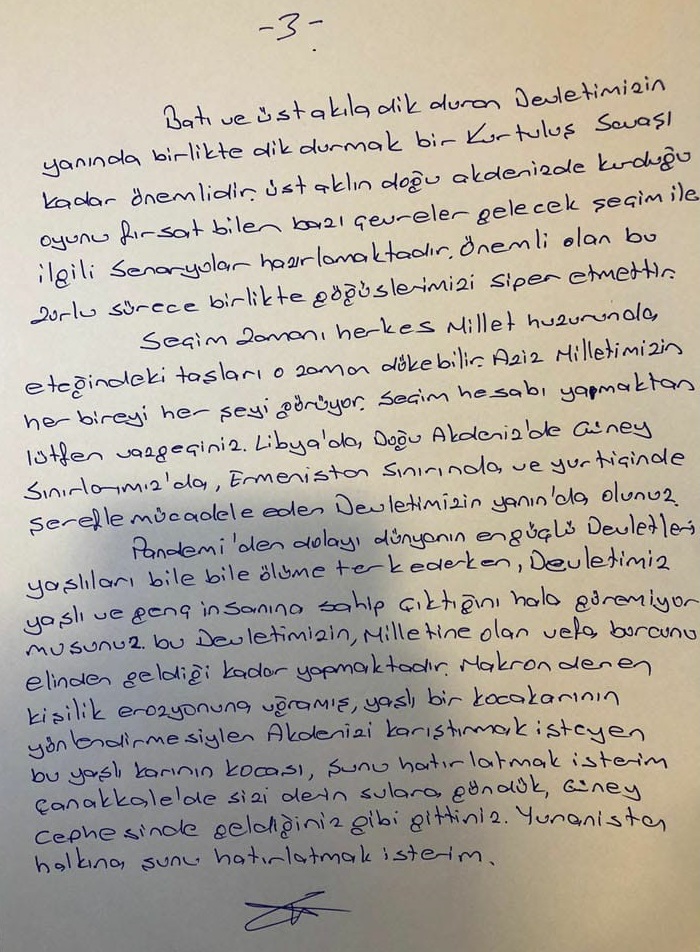 -3-
Batı ve üst akıla dik duran Devletimizin
yanında birlikte dik durmak bir Kurtuluş Savaşı
kadar önemlidir. üst aklın doğu akdenizde kurduğu
oyunu fırsat bilen bazı çevreler gelecek seçim ile
ilgili senaryolar hazırlamaktadır. önemli olan bu
zorlu sürece birlikte göğüslerimizi siper etmettir.
Seçim zamanı herkes Millet huzurunda,
eteğindeki taşları o zaman dökebilir. Aziz Milletimizin
her bireyi her şeyi görüyor. Seçim hesabı yapmaktan
lütfen vazgeçiniz. Libya'da, Doğu Akdeniz'de Güney
Sınırlarımız'da, Ermenistan sınırında, ve yurtiçinde
şerefle mücadele eden Devletimizin yanın'da olunuz.
Pandemi'den dolayı dünyanın en güçlü Devletleri
yaşlıları bile bile ölüme terkederken, Devletimiz
yaşlı ve genç insanına sahip çıktığını hala göremiyor
musunuz. bu Devletimizin, Milletine olan vefa borcunu
elinden geldiği kadar yapmaktadır. Makron denen
kişilik erozyonuna uğramış, yaşlı bir kocakarının
yönlendirmesiylen Akdenizi karıştırmak isteyen
bu yaşlı karının kocası, şunu hatırlatmak isterim
Çanakkale'de sizi derin sulara gömdük, Güney
cephesinde geldiğiniz gibi gittiniz. Yunanistan
halkına, şunu hatırlatmak isterim.